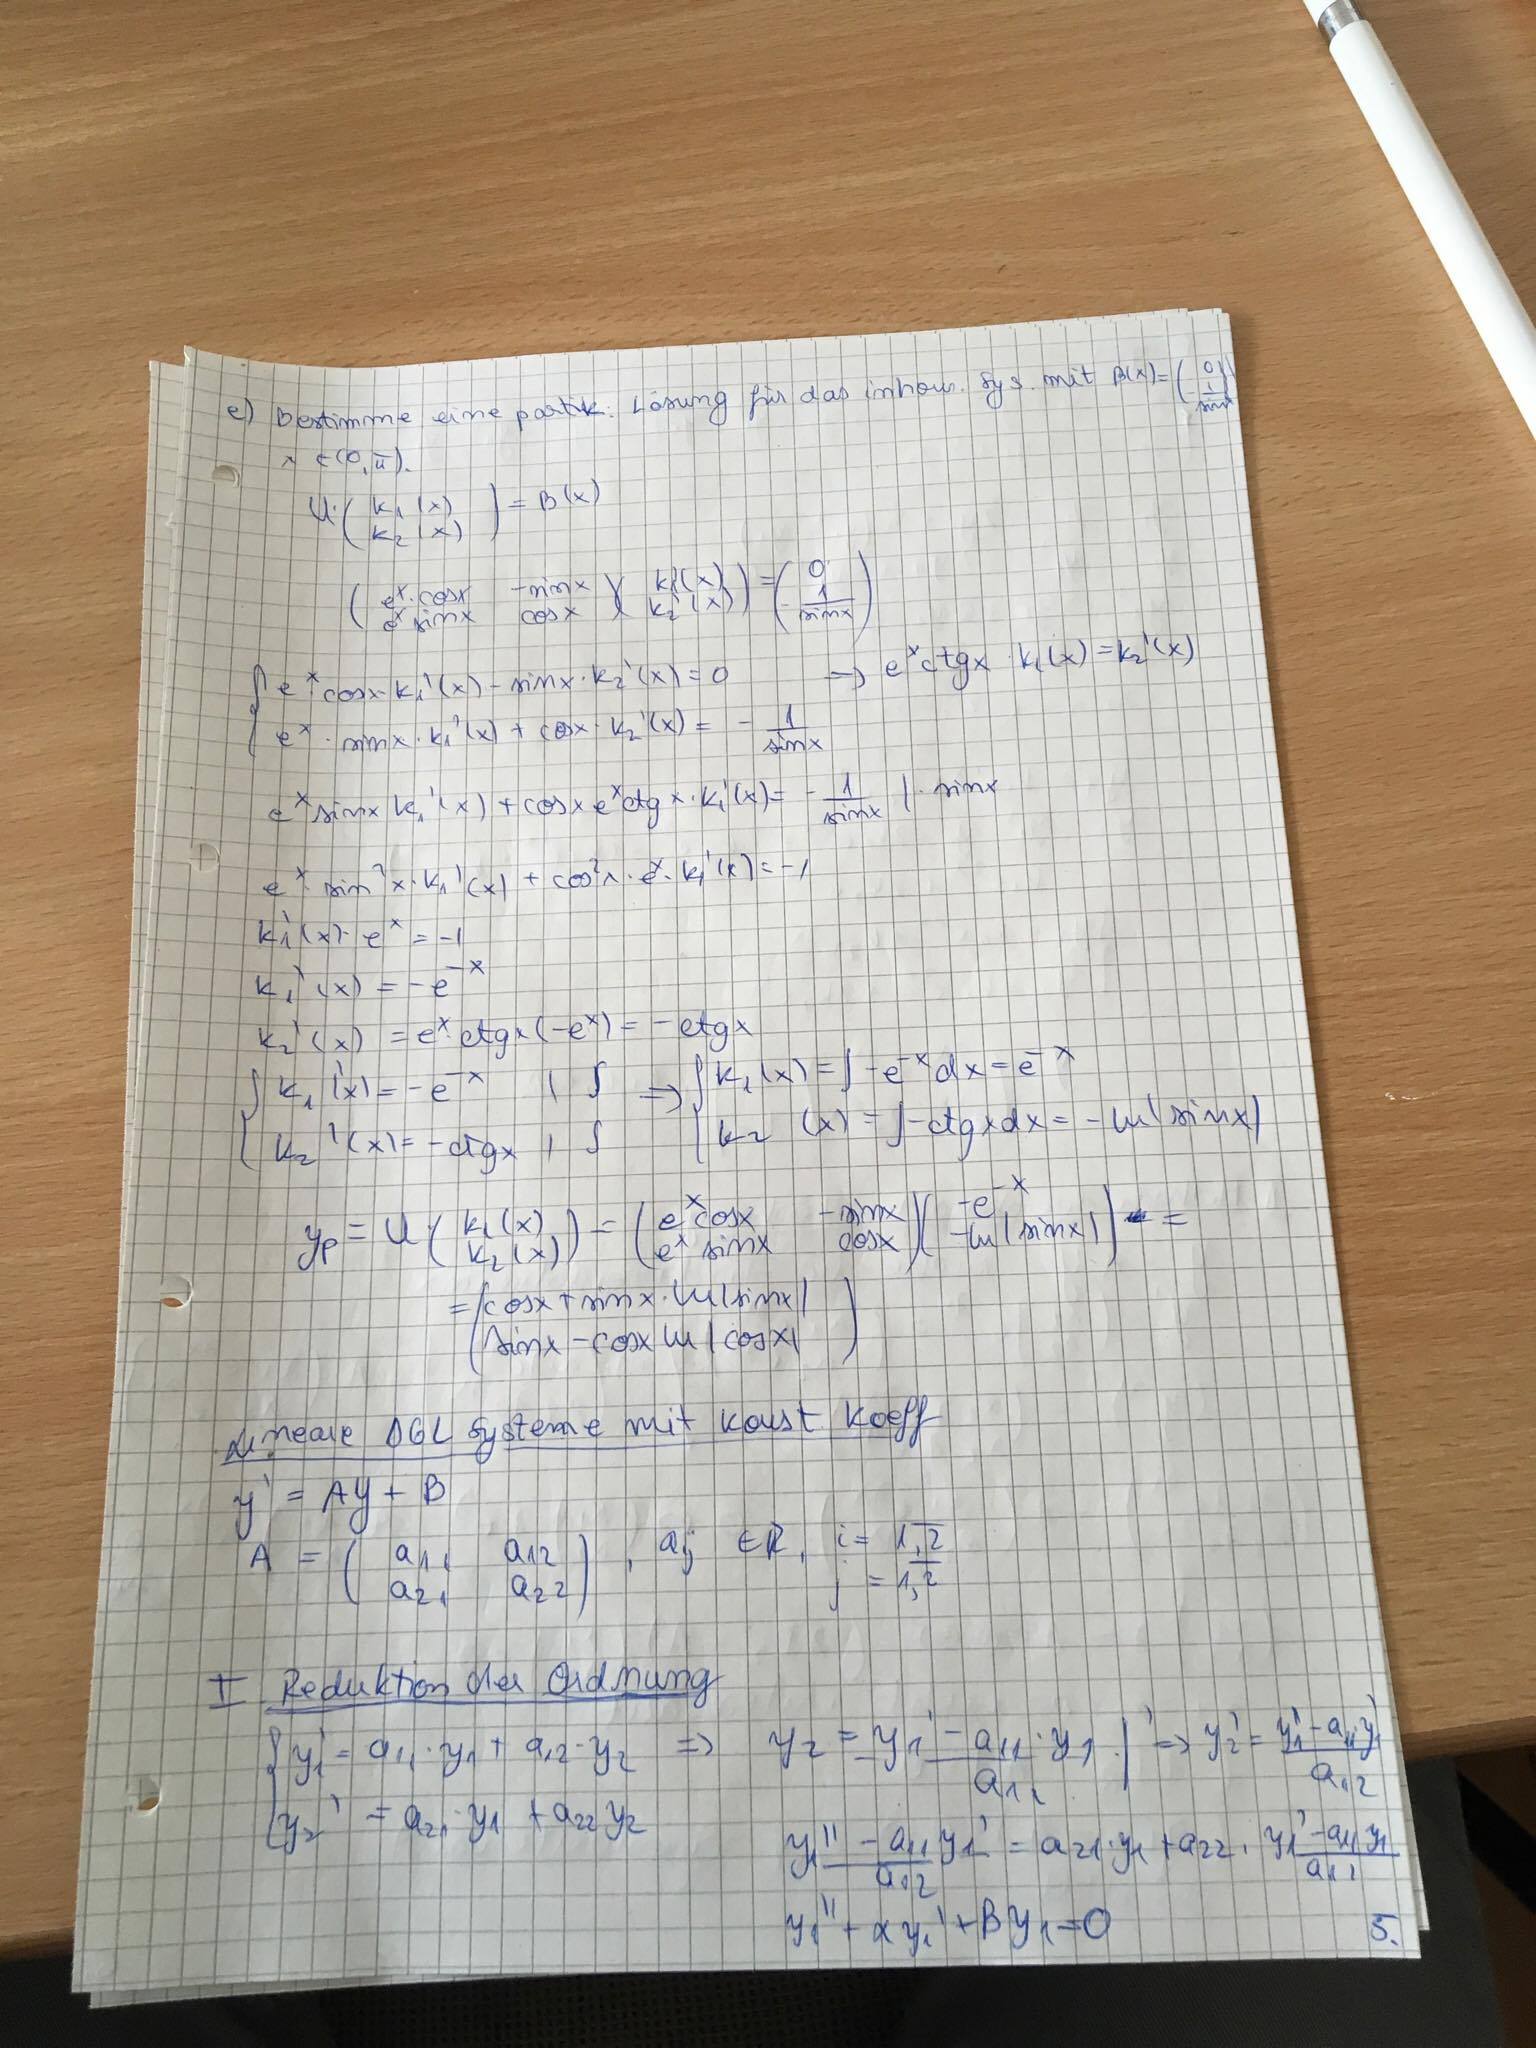 e) Bestimme eine partik. Lösung für das inhom. Sys. mit B(x)=(0 / 1/sinx)
x ∈(0,π).
U·(k₁'(x) / k₂'(x)) = B(x)
(eˣ·cosx -sinx / eˣ sinx cosx)(k₁'(x) / k₂'(x)) = (0 / -1/sinx)
{ eˣ cosx·k₁'(x) - sinx·k₂'(x) = 0 → eˣ ctgx·k₁(x) = k₂'(x)
eˣ·sinx·k₁'(x) + cosx·k₂'(x) = -1/sinx
eˣ sinx k₁'(x) + cosx eˣ ctgx·k₁'(x) = -1/sinx |·sinx
eˣ·sin²x·k₁'(x) + cos²x·eˣ·k₁'(x) = -1
k₁'(x)·eˣ = -1
k₁'(x) = -e⁻ˣ
k₂'(x) = eˣ·ctgx(-eˣ) = -ctgx
{ k₁'(x) = -e⁻ˣ | ∫ ⇒ { k₁(x) = ∫-e⁻ˣdx = e⁻ˣ
k₂'(x) = -ctgx | ∫ k₂(x) = ∫-ctgxdx = -ln|sinx|
yp = U·(k₁(x) / k₂(x)) = (eˣcosx -sinx / eˣ sinx cosx)(-e⁻ˣ / -ln|sinx|) =
= (cosx + sinx·ln|sinx| / sinx - cosx ln|cosx|)
Lineare DGL Systeme mit konst Koeff
y' = Ay + B
A = (a₁₁ a₁₂ / a₂₁ a₂₂), aᵢⱼ ∈ℝ, i = 1,2
j = 1,2
I Reduktion der Ordnung
{ y₁' = a₁₁·y₁ + a₁₂·y₂ ⇒ y₂ = (y₁' - a₁₁·y₁)/a₁₂ |' ⇒ y₂' = (y₁' - a₁₁y₁')/a₁₂
y₂' = a₂₁·y₁ + a₂₂y₂
(y₁'' - a₁₁y₁')/a₁₂ = a₂₁·y₁ + a₂₂·(y₁' - a₁₁y₁)/a₁₂
y₁'' + αy₁' + By₁ = 0
5.